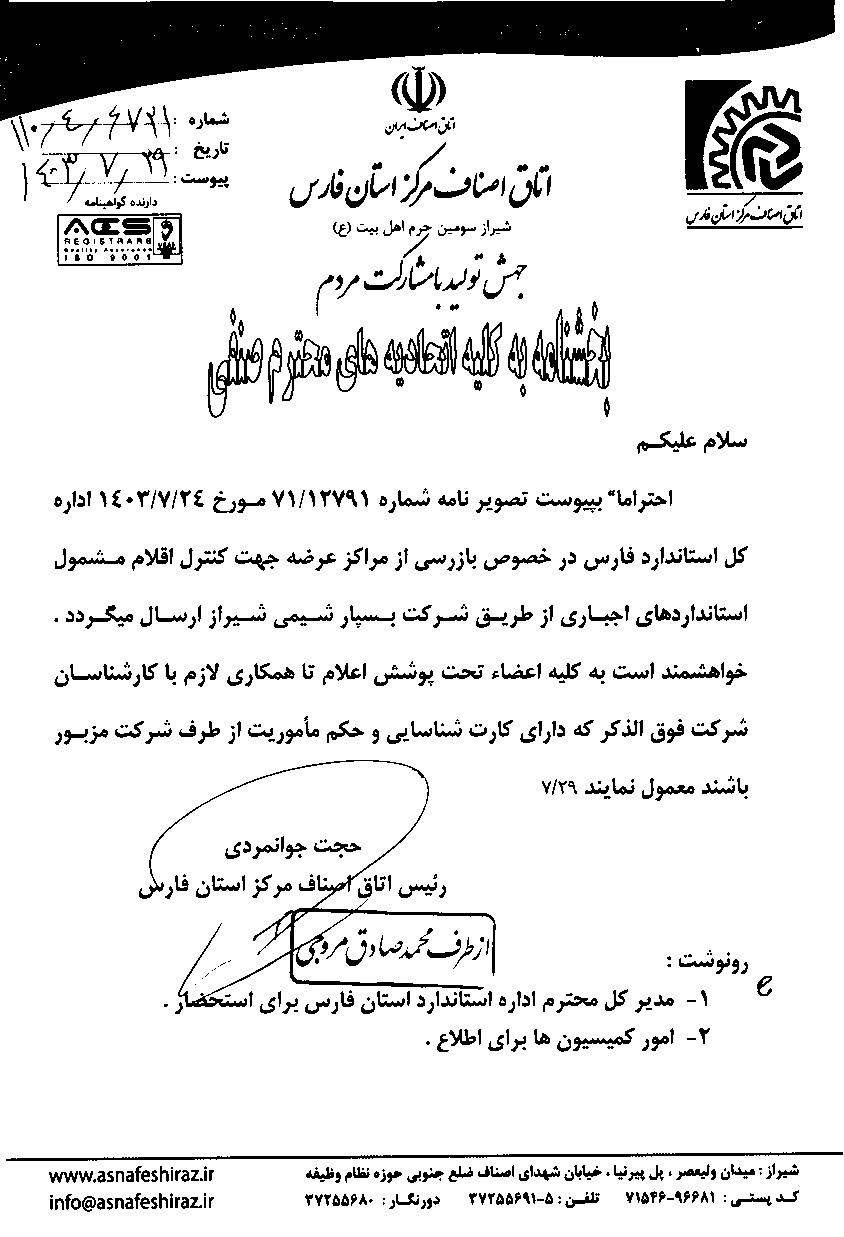 اتاق اصناف ایران
اتاق اصناف مرکز استان فارس
شیراز سومین حرم اهل بیت (ع)
جهش تولید با مشارکت مردم
اتاق اصناف مرکز استان فارس
شماره :
تاریخ : ۱۴۰۳/۷/۲۹
پیوست :
دارنده گواهینامه
ACS
REGISTRARS
Quality Assurance
ISO 9001
بخشنامه به کلیه اتحادیه های محترم صنفی
سلام علیکم
احتراما" بپیوست تصویر نامه شماره ۷۱/۱۲۷۹۱ مورخ ۱۴۰۳/۷/۲۴ اداره
کل استاندارد فارس در خصوص بازرسی از مراکز عرضه جهت کنترل اقلام مشمول
استانداردهای اجباری از طریق شرکت بسپار شیمی شیراز ارسال میگردد .
خواهشمند است به کلیه اعضاء تحت پوشش اعلام تا همکاری لازم با کارشناسان
شرکت فوق الذکر که دارای کارت شناسایی و حکم مأموریت از طرف شرکت مزبور
باشند معمول نمایند ۷/۲۹
حجت جوانمردی
رئیس اتاق اصناف مرکز استان فارس
از طرف محمد صادق مروجی
رونوشت :
۱- مدیر کل محترم اداره استاندارد استان فارس برای استحضار .
۲- امور کمیسیون ها برای اطلاع .
شیراز : میدان ولیعصر ، پل پیرنیا ، خیابان شهدای اصناف ضلع جنوبی حوزه نظام وظیفه
کد پستی : ۷۱۵۴۶-۹۶۶۸۱ تلفن : ۵-۳۷۲۵۵۶۹۱ دورنگار : ۳۷۲۵۵۶۸۰
www.asnafeshiraz.ir
info@asnafeshiraz.ir